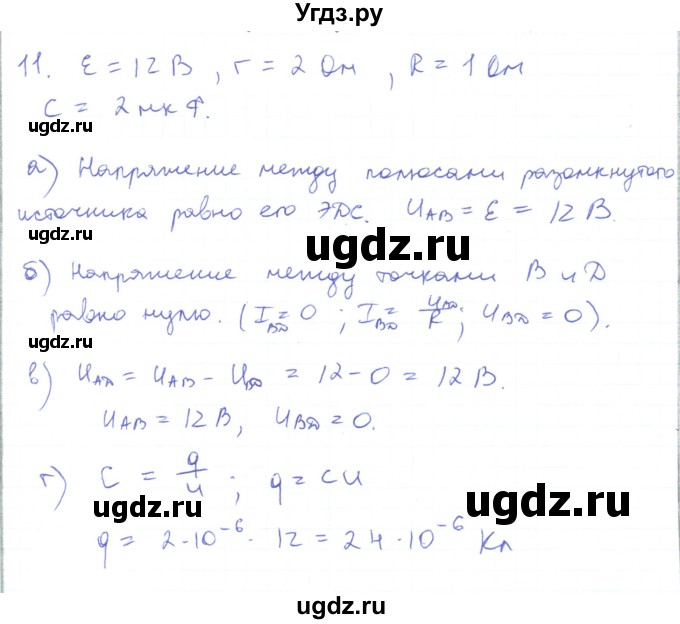 Угдз.ру
11. ε = 12 В, r = 2 Ом, R = 1 Ом
C = 2 мкФ.
ugdz.ru
а) Напряжение между полюсами разомкнутого
источника равно его ЭДС. U_AB = ε = 12 В.
ugdz.ru
ugdz.ru
б) Напряжение между точками В и Д
равно нулю. (I_ВД = 0; I_ВД = U_ВД/R; U_ВД = 0).
ugdz.ru
в) U_АД = U_АВ − U_ВД = 12 − 0 = 12 В.
U_АВ = 12 В, U_ВД = 0.
ugdz.ru
г) C = q/U; q = CU
ugdz.ru
ugdz.ru
q = 2·10⁻⁶ · 12 = 24·10⁻⁶ Кл
ugdz.ru
ugdz.ru